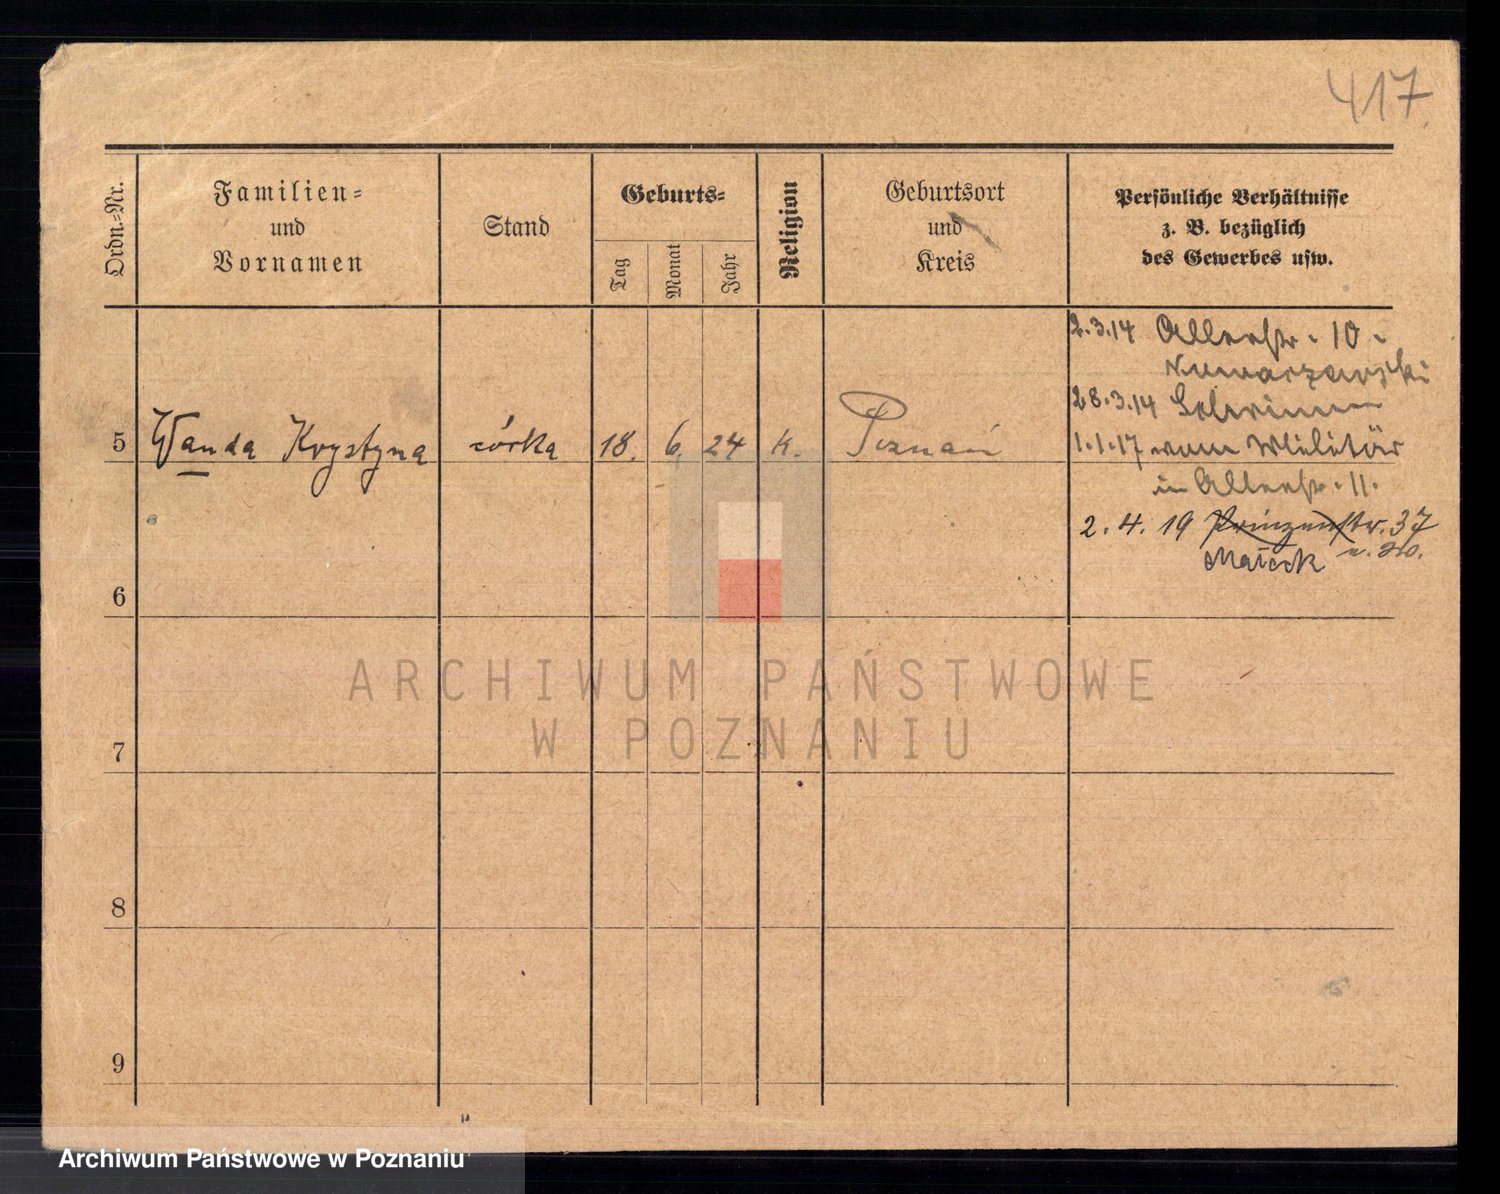 417.
Ordn.-Nr.
Familien-
und
Vornamen
Stand
Geburts-
Tag
Monat
Jahr
Religion
Geburtsort
und
Kreis
Persönliche Verhältnisse
z. B. bezüglich
des Gewerbes usw.
2.3.14 Allerstr. 10.
28.3.14
5 Wanda Krystyna córka 18. 6. 24 k. Poznań
1.1.17 vom Militär
in Allerstr. 11.
2.4.19 Prinzenstr. 37
6
7
8
9
ARCHIWUM PAŃSTWOWE
W POZNANIU
Archiwum Państwowe w Poznaniu